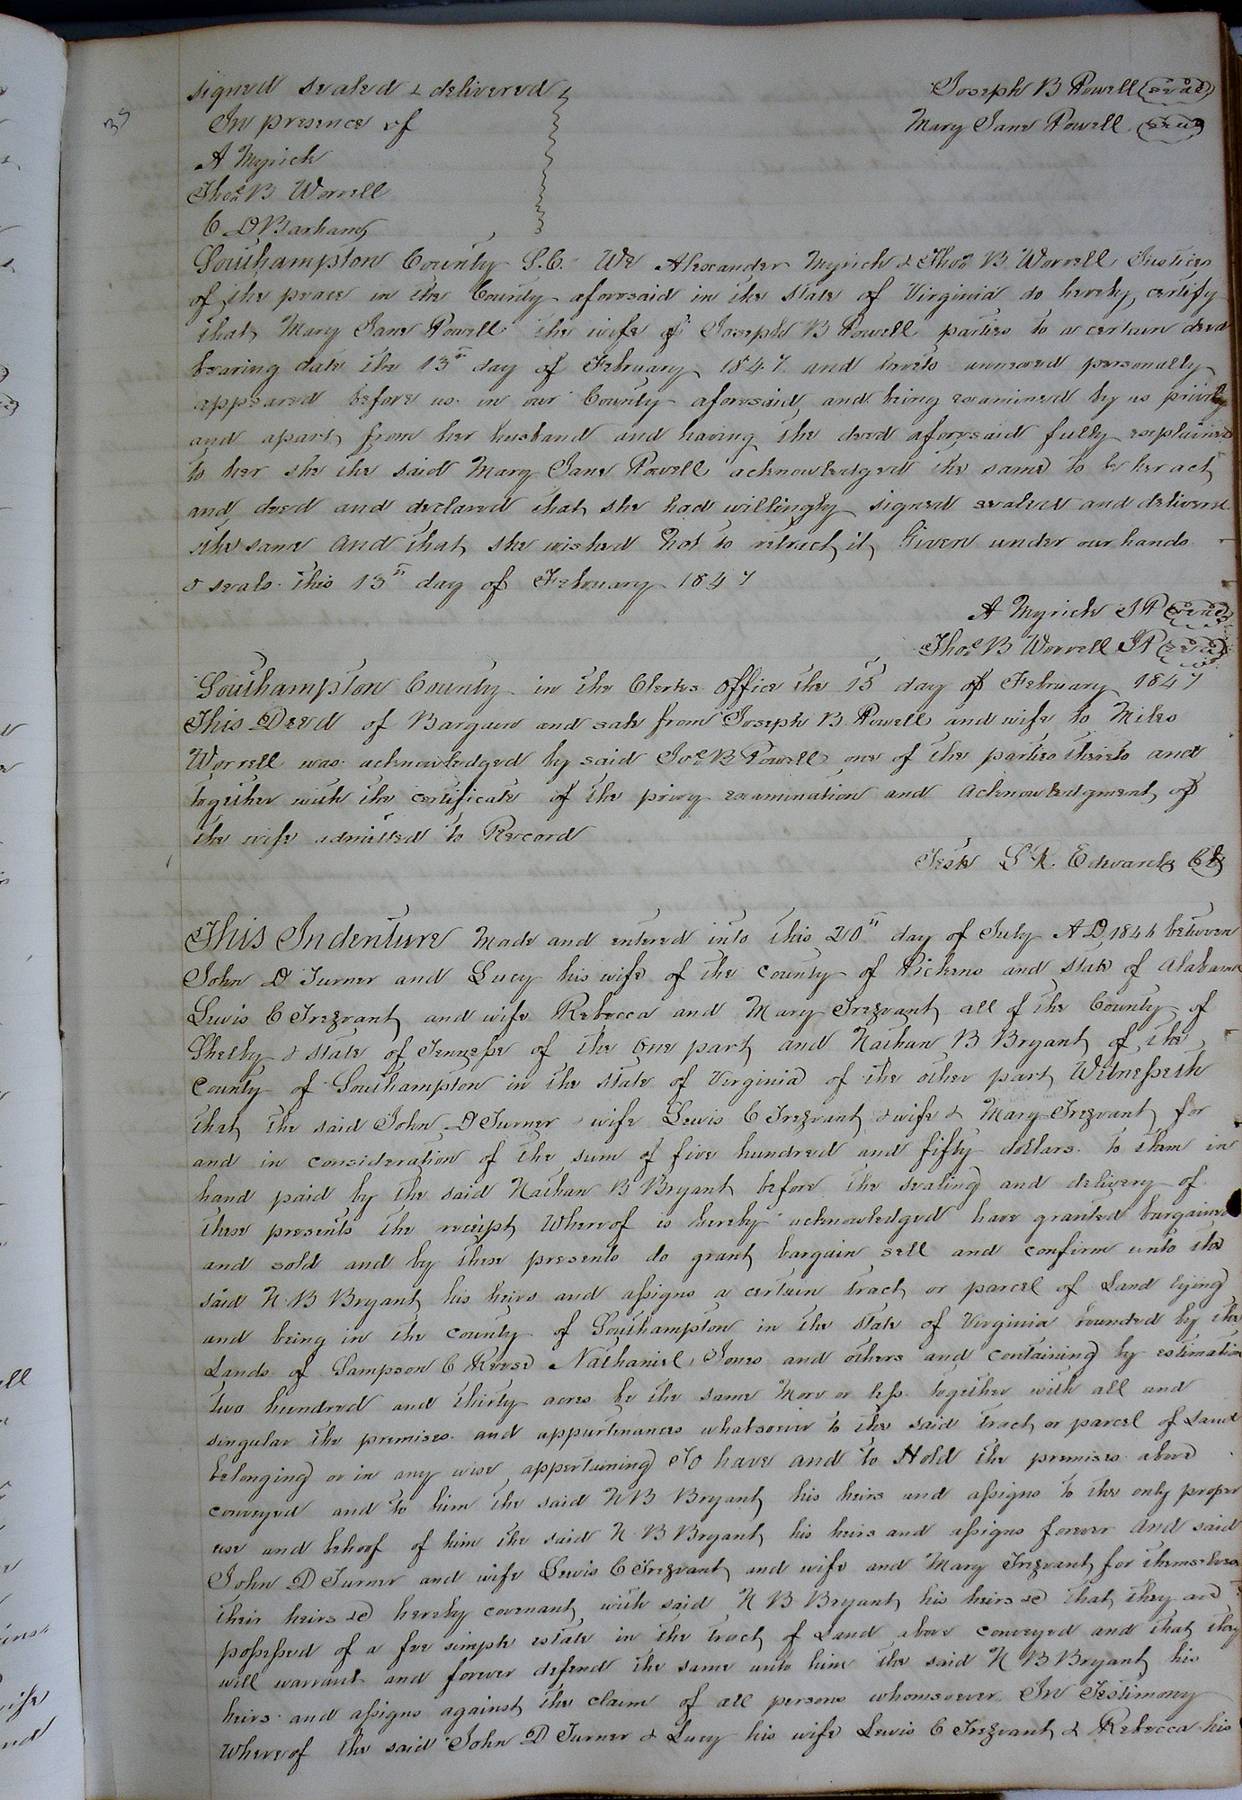 signed sealed & delivered
Joseph B Powell (seal)
In presence of
Mary Jane Powell (seal)
A Myrick
Thos B Worrell
C D Barham
Southampton County S.C. We Alexander Myrick & Thos B. Worrell Justices
of the peace in the County aforesaid in the State of Virginia do hereby certify
that Mary Jane Powell the wife of Joseph B Powell parties to a certain deed
bearing date the 13th day of February 1847 and hereto annexed personally
appeared before us in our County aforesaid, and being examined by us privily
and apart from her husband and having the deed aforesaid fully explained
to her she the said Mary Jane Powell acknowledged the same to be her act
and deed and declared that she had willingly signed sealed and delivered
the same and that she wished not to retract it, Given under our hands
& seals this 13th day of February 1847
A Myrick JP (seal)
Thos B Worrell JP (seal)
Southampton County in the Clerks Office the 15 day of February 1847
This Deed of Bargain and sale from Joseph B. Powell and wife to Miles
Worrell was acknowledged by said Jos B Powell one of the parties thereto and
together with the certificate of the privy examination and acknowledgment of
the wife admitted to Record
Teste L R. Edwards Clk
This Indenture Made and entered into this 20th day of July A D, 1846 between
John D Turner and Lucy his wife of the county of Pickens and state of Alabama
Lewis C Trezvant and wife Rebecca and Mary Trezvant all of the County of
Shelby & state of Tennessee of the one part and Nathan B Bryant of the
County of Southampton in the state of Virginia of the other part Witnesseth
that the said John D Turner & wife Lewis C Trezvant & wife & Mary Trezvant for
and in consideration of the sum of five hundred and fifty dollars to them in
hand paid by the said Nathan B Bryant before the sealing and delivery of
these presents the receipt whereof is hereby acknowledged have granted bargained
and sold and by these presents do grant bargain sell and confirm unto the
said N. B Bryant his heirs and assigns a certain tract or parcel of Land lying
and being in the county of Southampton in the state of Virginia bounded by the
Lands of Sampson C Reese Nathaniel Jones and others and containing by estimation
two hundred and thirty acres be the same more or less together with all and
singular the premises and appurtenances whatsoever to the said tract or parcel of Land
belonging or in any wise appertaining To have and to Hold the premises above
conveyed and to him the said N B Bryant his heirs and assigns to the only proper
use and behoof of him the said N. B Bryant his heirs and assigns forever And said
John D Turner and wife Lewis C Trezvant and wife and Mary Trezvant for themselves
their heirs &c hereby covenant with said N B Bryant his heirs &c that they are
possessed of a fee simple estate in the tract of Land above conveyed and that they
will warrant and forever defend the same unto him the said N B Bryant his
heirs and assigns against the claim of all persons whomsoever In Testimony
Whereof the said John D Turner & Lucy his wife Lewis C Trezvant & Rebecca his